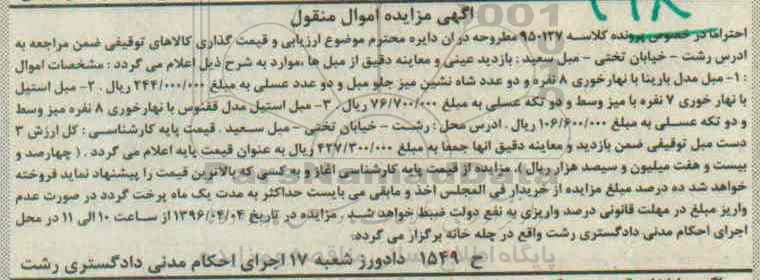 آگهی مزایده اموال منقول
احتراما در خصوص پرونده کلاسه ۹۵۰۱۲۷ مطروحه در ان دایره محترم موضوع ارزیابی و قیمت گذاری کالاهای توقیفی ضمن مراجعه به
ادرس رشت – خیابان تختی – مبل سعید : بازدید عینی و معاینه دقیق از مبل ها ،موارد به شرح ذیل اعلام می گردد : مشخصات اموال
: ۱- مبل مدل باربنا با نهارخوری ۸ نفره و دو عدد شاه نشین میز جلو مبل و دو عدد عسلی به مبلغ ۲۴۴/۰۰۰/۰۰۰ ریال . ۲- مبل استیل
با نهار خوری ۷ نفره با میز وسط و دو تکه عسلی به مبلغ ۷۶/۷۰۰/۰۰۰ ریال . ۳- مبل استیل مدل ققنوس با نهارخوری ۸ نفره میز وسط
و دو تکه عسلی به مبلغ ۱۰۶/۶۰۰/۰۰۰ ریال . ادرس محل : رشت – خیابان تختی – مبل سعید . قیمت پایه کارشناسی : کل ارزش ۳
دست مبل توقیفی ضمن بازدید و معاینه دقیق انها جمعا به مبلغ ۴۲۷/۳۰۰/۰۰۰ ریال به عنوان قیمت پایه اعلام می گردد . ( چهارصد و
بیست و هفت میلیون و سیصد هزار ریال ). مزایده از قیمت پایه کارشناسی اغاز و به کسی که بالاترین قیمت را پیشنهاد نماید فروخته
خواهد شد ده درصد مبلغ مزایده از خریدار فی المجلس اخذ و مابقی می بایست حداکثر به مدت یک ماه پرخت گردد در صورت عدم
واریز مبلغ در مهلت قانونی درصد واریزی به نفع دولت ضبط خواهد شد . مزایده در تاریخ ۱۳۹۶/۰۴/۰۴ از ساعت ۱۰ الی ۱۱ در محل
اجرای احکام مدنی دادگستری رشت واقع در چله خانه برگزار می گردد.
ح ۱۵۴۹ دادورز شعبه ۱۷ اجرای احکام مدنی دادگستری رشت